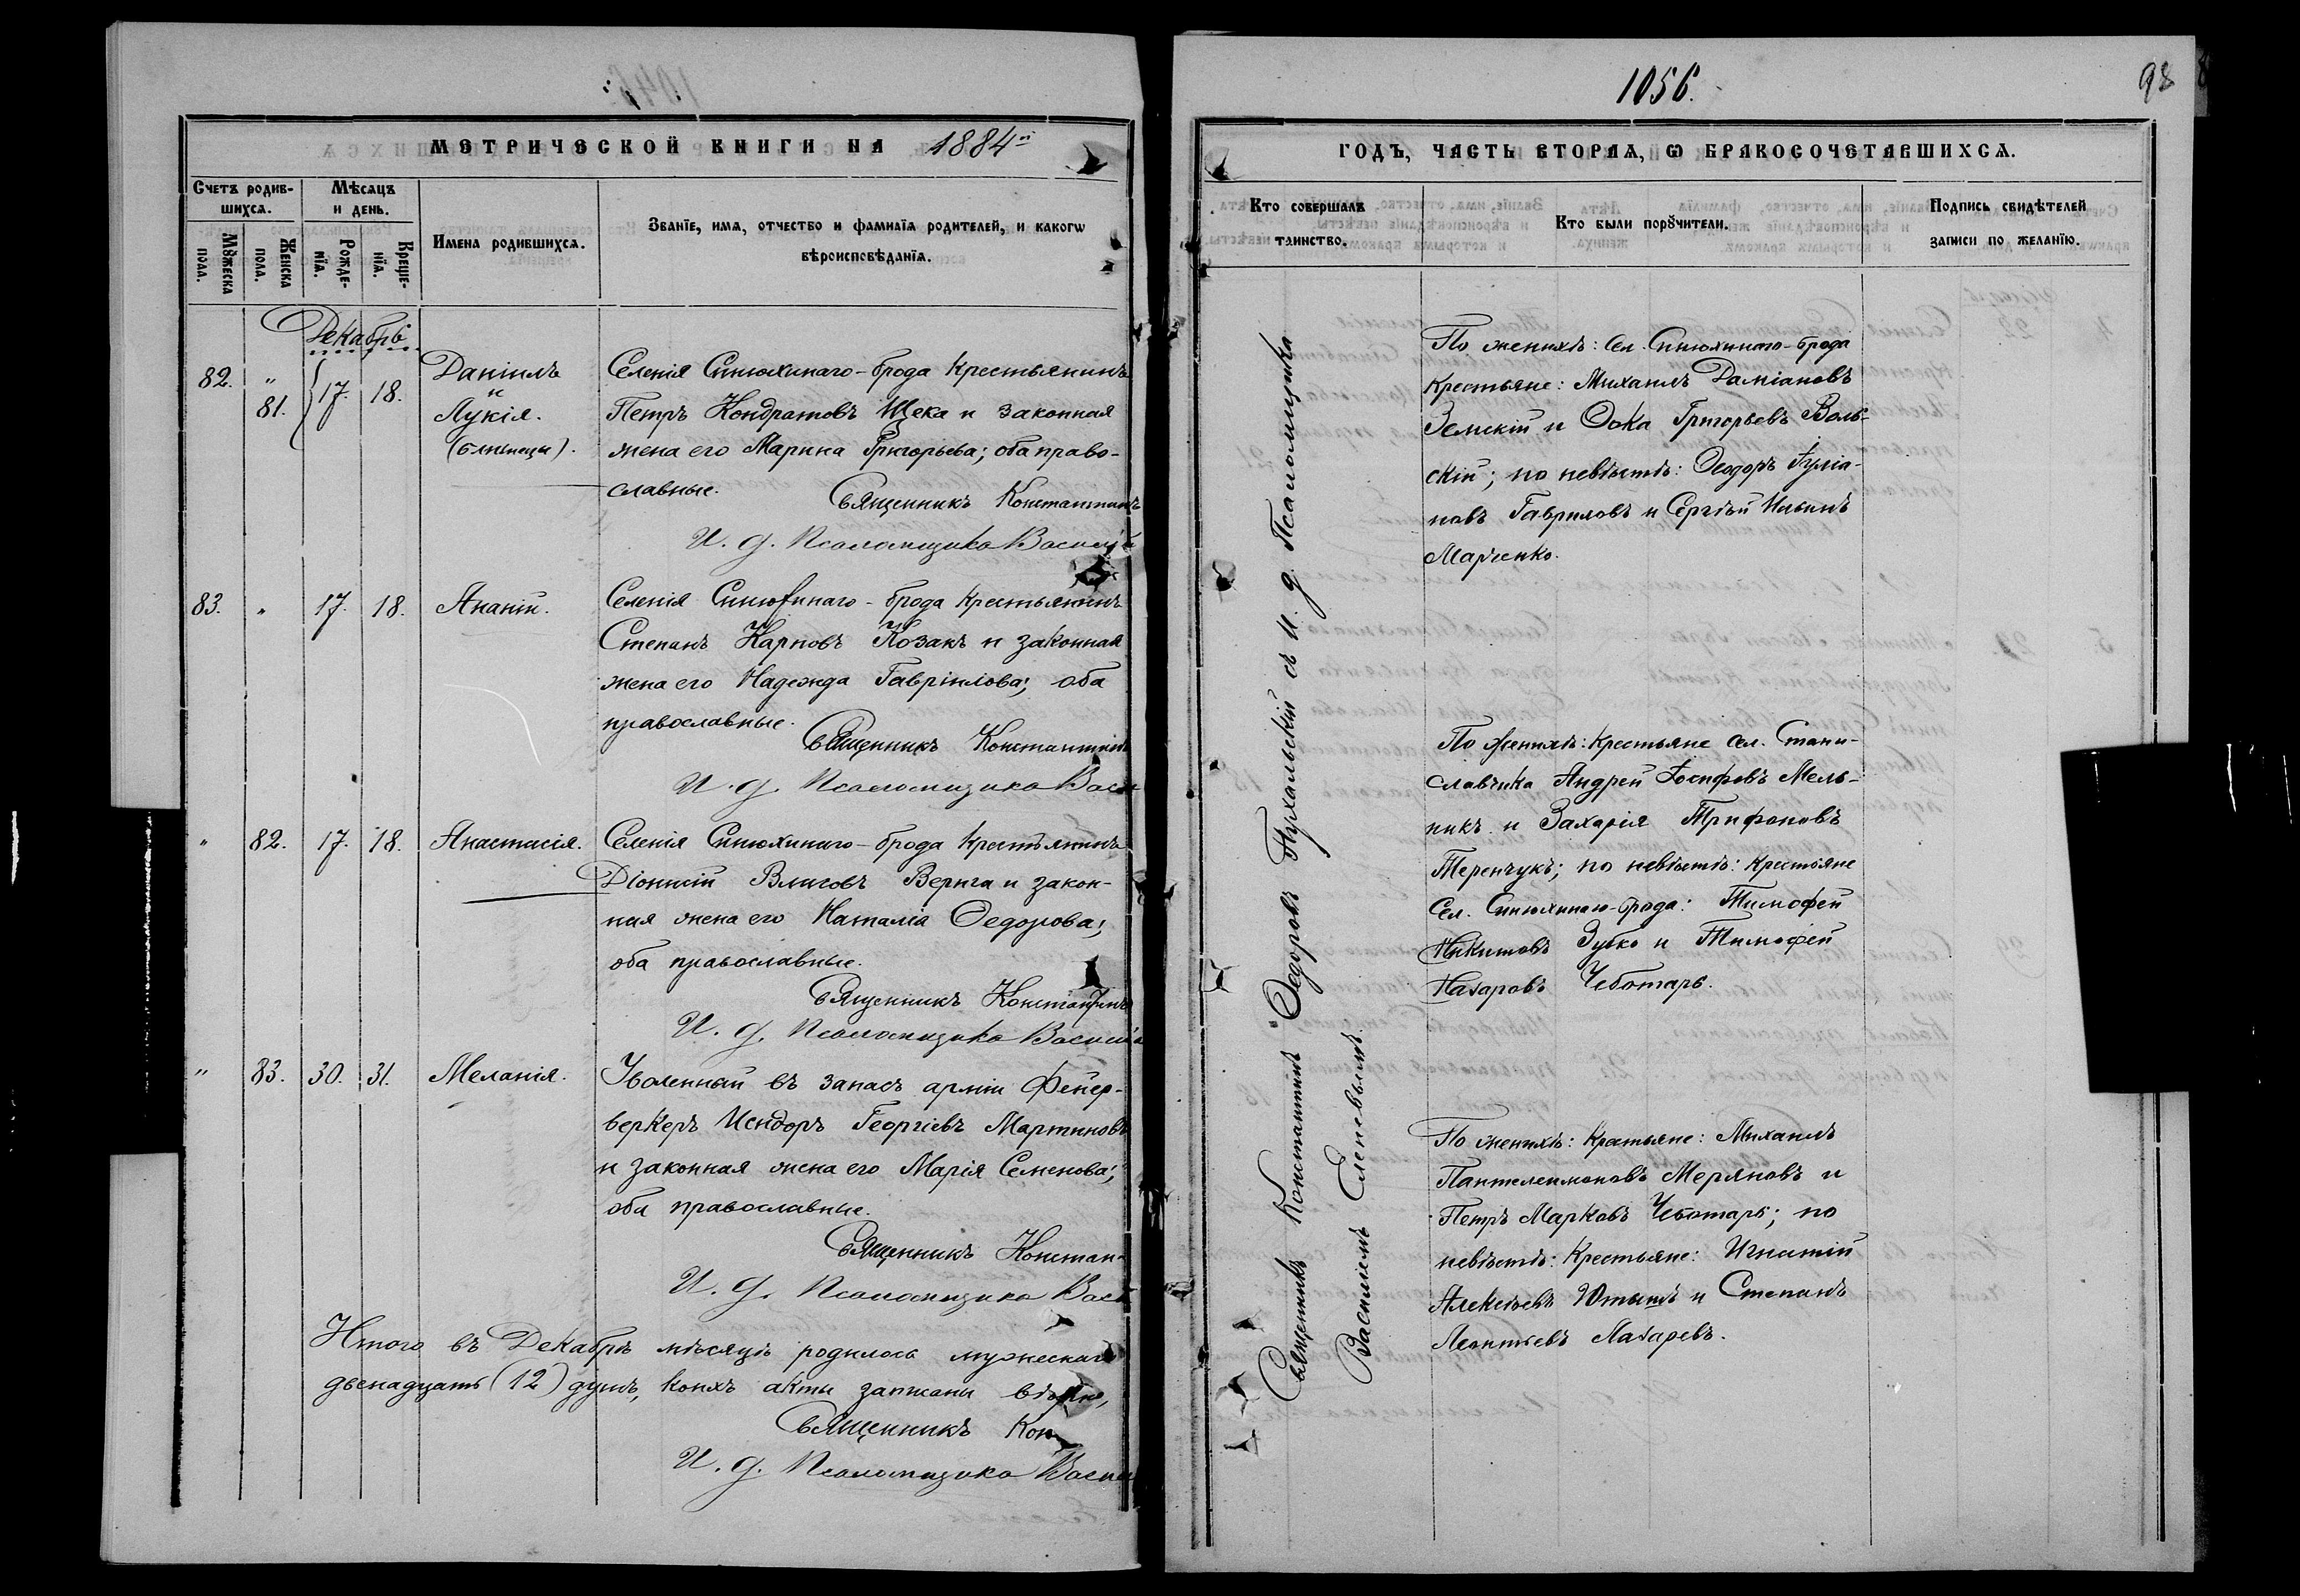 МЕТРИЧЕСКОЙ КНИГИ НА 1884й
Счетъ родившихся.
Мѣсяцъ и день.
Имена родившихся.
Званїе, имя, отчество и фамилїя родителей, и какогѡ
вѣроисповѣданїя.
Мꙋжеска пола.
Женска пола.
Рожденїя.
Крещенїя.
Декабрь
82. " 81. 17. 18.
Даніилъ
и
Лукія.
(близнецы).
Селенія Синюхинаго-брода Крестьянинъ
Петръ Кондратовъ Щека и законная
жена его Марина Григорьева; оба право-
славные.
Священникъ Константинъ
И. д. Псаломщика Василій
83. " 17. 18. Ананій.
Селенія Синюхинаго-брода Крестьянинъ
Степанъ Карповъ Козакъ и законная
жена его Надежда Гавріилова; оба
православные.
Священникъ Константинъ
И. д. Псаломщика Васи
" 82. 17. 18. Анастасія.
Селенія Синюхинаго-брода Крестьянинъ
Діонисій Верига и закон-
ная жена его Наталія Федорова;
оба православные.
Священникъ Константинъ
И. д. Псаломщика Василій
" 83. 30. 31. Меланія.
Уволенный въ запасъ арміи Фейер-
веркеръ Исидоръ Георгіевъ Мартиновъ
и законная жена его Марія Семенова;
оба православные.
Священникъ Констан-
И. д. Псаломщика Васи
Итого въ Декабрѣ мѣсяцѣ родилось мужескаго
двенадцать (12) душъ, коихъ акты записаны вѣрно,
Священникъ Кон
И. д. Псаломщика Васил
1056.
98
ГОДЪ, ЧАСТЬ ВТОРАЯ, Ѡ БРАКОСОЧЕТАВШИХСЯ.
Кто совершалъ
таинство.
Кто были порꙋчители.
Подпись свидѣтелей
записи по желанїю.
Священникъ Константинъ Федоровъ Пухальскій съ И. д. Псаломщика
Василіемъ Слепевымъ
По женихѣ: Сел. Синюхинаго-брода
Крестьяне: Михаилъ Даміановъ
Земскій и Фока Григорьевъ Воль-
скій; по невѣстѣ: Феодоръ Іуліа-
новъ Гавриловъ и Сергѣй Ильинъ
Марченко.
По женихѣ: Крестьяне сел. Стани-
славчика Андрей Іосифовъ Мель-
никъ и Захарія Трифоновъ
Теренчукъ; по невѣстѣ: Крестьяне
Сел. Синюхинаго-брода: Тимофей
Никитовъ Зубко и Тимофей
Назаровъ Чеботарь.
По женихѣ: Крестьяне: Михаилъ
Пантелеимоновъ Меряновъ и
Петръ Марковъ Чеботарь; по
невѣстѣ: Крестьяне: Игнатій
Алексѣевъ и Степанъ
Леонтьевъ Лазаревъ.